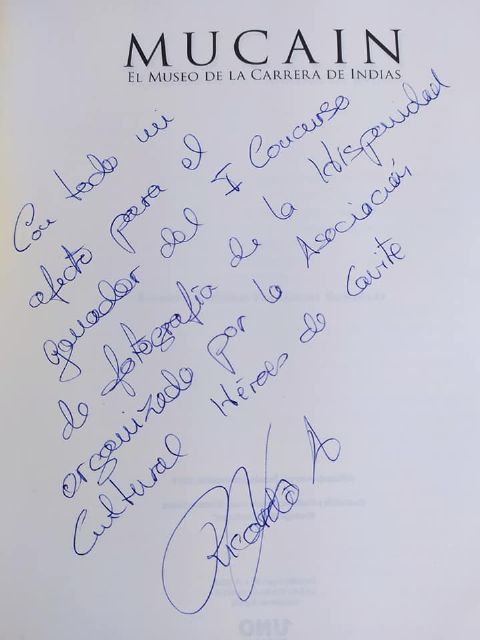 MUCAIN
EL MUSEO DE LA CARRERA DE INDIAS
Con todo mi
afecto para el
ganador del I Concurso
de fotografía de la Hispanidad
organizado por la Asociación
Cultural Héroes de Cavite
Ricardo A
UNO